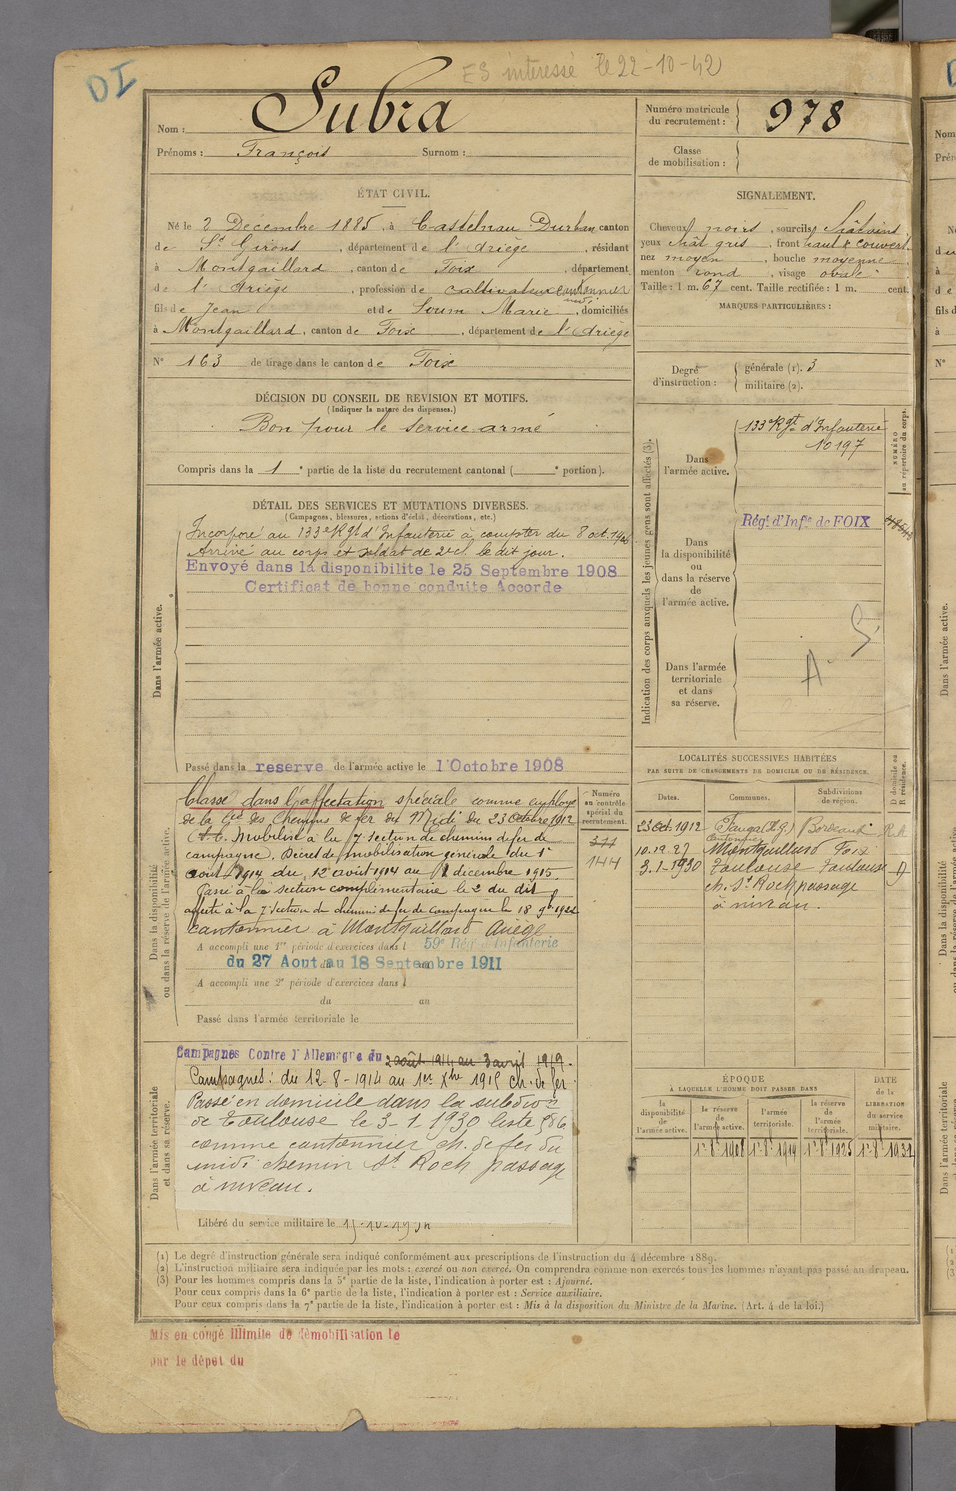 DI
ES interessé le 22-10-42
Nom : Subra
Prénoms : François Surnom :
Numéro matricule du recrutement : 978
Classe de mobilisation :
ÉTAT CIVIL.
Né le 2 Décembre 1885, à Castelnau Durban canton
de St Girons, département de l'Ariège, résidant
à Montgaillard, canton de Foix, département
de l'Ariège, profession de cultivateur cantonnier
fils de Jean et de Soum Marie, domiciliés
à Montgaillard, canton de Foix, département de l'Ariège
N° 163 de tirage dans le canton de Foix
SIGNALEMENT.
Cheveux noirs, sourcils châtains
yeux chât gris, front haut & couvert
nez moyen, bouche moyenne
menton rond, visage ovale
Taille : 1 m. 67 cent. Taille rectifiée : 1 m. cent.
MARQUES PARTICULIÈRES :
Degré d'instruction : générale (1). 3
militaire (2).
DÉCISION DU CONSEIL DE REVISION ET MOTIFS.
(Indiquer la nature des dispenses.)
Bon pour le service armé
Compris dans la 1e partie de la liste du recrutement cantonal ( e portion).
DÉTAIL DES SERVICES ET MUTATIONS DIVERSES.
(Campagnes, blessures, actions d'éclat, décorations, etc.)
Dans l'armée active.
Incorporé au 133e Rgt d'Infanterie à compter du 8 oct. 1906
Arrivé au corps et soldat de 2e cl. le dit jour.
Envoyé dans la disponibilite le 25 Septembre 1908
Certificat de bonne conduite Accorde
Passé dans la reserve de l'armée active le 1 Octobre 1908
Indication des corps auxquels les jeunes gens sont affectés (3).
NUMÉRO au répertoire du corps.
Dans l'armée active.
133e Rgt d'Infanterie
10197
Dans la disponibilité ou dans la réserve de l'armée active.
Régt d'Infie de FOIX
Dans l'armée territoriale et dans sa réserve.
A. S
Dans la disponibilité ou dans la réserve de l'armée active.
Classé dans l'affectation spéciale comme employé
de la Cie des Chemins de fer du Midi du 23 octobre 1912
Mobilisé à la 7e section de chemins de fer de
campagne. Décret de mobilisation générale du 1er
août 1914 du 12 août 1914 au 1 décembre 1915
Passé à la section complémentaire le 2 du dit
affecté à la 7 Section de chemin de fer de campagne le 18 9bre 1922
cantonnier à Montgaillard Ariège
A accompli une 1re période d'exercices dans l 59e Rég d'Infanterie
du 27 Aout au 18 Septembre 1911
A accompli une 2e période d'exercices dans l
du au
Passé dans l'armée territoriale le
Numéro au contrôle spécial du recrutement.
144
LOCALITÉS SUCCESSIVES HABITÉES
PAR SUITE DE CHANGEMENTS DE DOMICILE OU DE RÉSIDENCE.
Dates. Communes. Subdivisions de région. D domicile ou R résidence.
23 oct. 1912 Fauga (H.G.) Bordeaux R
10.12.27 Montgaillard Foix
3-1-1930 Toulouse Toulouse D
ch. St Roch passage
à niveau.
Dans l'armée territoriale et dans sa réserve.
Campagnes Contre l'Allemagne du 2 août 1914 au 3 avril 1919.
Campagnes : du 12-8-1914 au 1er Xbre 1915 ch. de fer
Passé en domicile dans la subdion
de Toulouse le 3-1-1930 liste 586
comme cantonnier ch. de fer du
midi chemin St Roch passage
à niveau.
Libéré du service militaire le 15-10-1934
ÉPOQUE
À LAQUELLE L'HOMME DOIT PASSER DANS
DATE de la LIBÉRATION du service militaire.
la disponibilité de l'armée active. la réserve de l'armée active. l'armée territoriale. la réserve de l'armée territoriale.
1er 8bre 1908 1er 8bre 1919 1er 8bre 1925 1er 8bre 1931
(1) Le degré d'instruction générale sera indiqué conformément aux prescriptions de l'instruction du 4 décembre 1889.
(2) L'instruction militaire sera indiquée par les mots : exercé ou non exercé. On comprendra comme non exercés tous les hommes n'ayant pas passé au drapeau.
(3) Pour les hommes compris dans la 5e partie de la liste, l'indication à porter est : Ajourné.
Pour ceux compris dans la 6e partie de la liste, l'indication à porter est : Service auxiliaire.
Pour ceux compris dans la 7e partie de la liste, l'indication à porter est : Mis à la disposition du Ministre de la Marine. (Art. 4 de la loi.)
Mis en congé illimité de démobilisation le
par le dépôt du